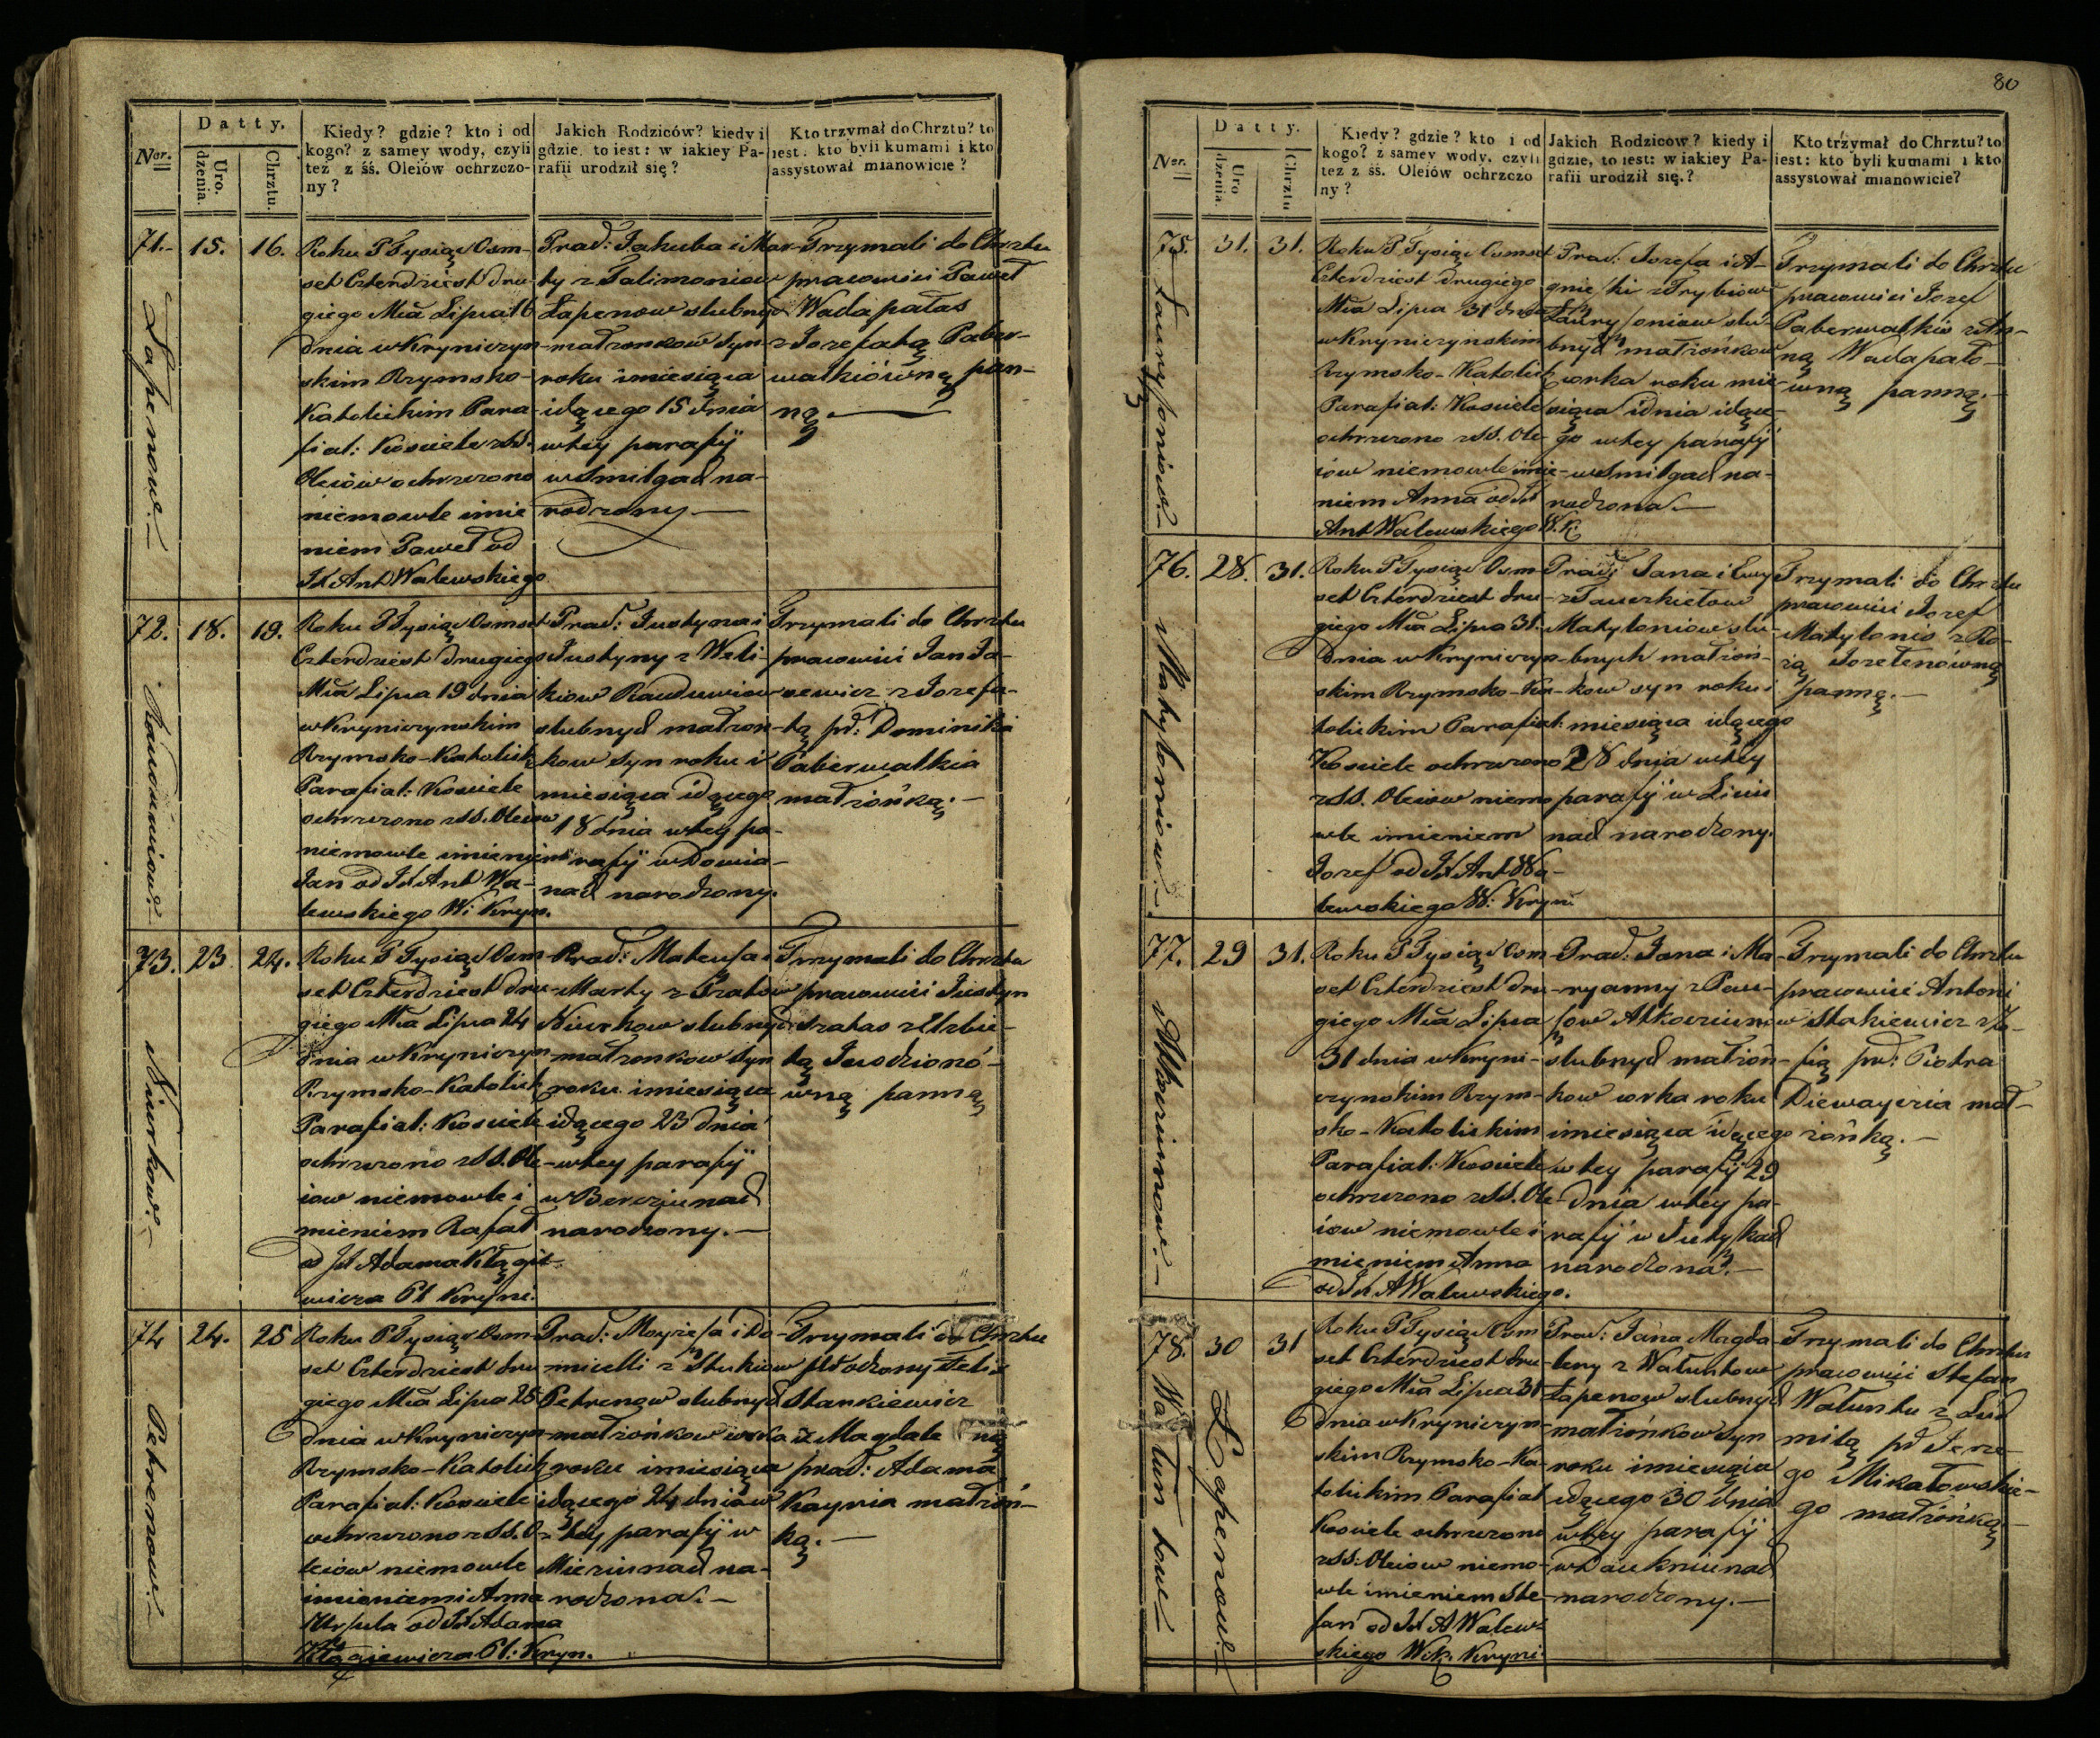 Datty.
Ner.
Uro.
dzenia.
Chrztu.
Kiedy? gdzie? kto i od
kogo? z samey wody, czyli
też z śś. Oleiów ochrzczo-
ny?
Jakich Rodziców? kiedy i
gdzie, to iest: w iakiey Pa-
rafii urodził się?
Kto trzymał do Chrztu? to
iest. kto byli kumami i kto
assystował mianowicie?
71.
15.
16.
Łapenow.
Roku P Tysiąc Osm-
set Czterdziest dru-
giego Mca Lipca 16
dnia w Kryniczyn-
skim Rzymsko-
Katolickim Para-
fial: Kosciele z SS.
Oleiów ochrzczono
niemowle imie
niem Paweł od
Jx Ant Walewskiego
Prac: Jakuba i Mar-
ty z Talimoniow
Łapenow slubnych
małżonkow Syn
roku i miesiąca
idącego 15 dnia
w tey parafij
w Smilgach na-
rodzony.
Trzymali do Chrztu
pracowici Paweł
Wadapałas
z Jozefatą Paber-
walkiówną pan-
ną.
72.
18.
19.
Roku P Tysiąc Osmset
Czterdziest drugiego
Mca Lipca 19 dnia
w Krynieczynskim
Rzymsko-Katolick
Parafial: Kosciele
ochrzczono z SS. Oleiow
niemowle imieniem
Jan od Jx Ant Wa-
lewskiego W: Kryn.
Prac: Justyna i
Justyny z Weli-
kiow
slubnych małżon-
kow Syn roku i
miesiąca idącego
18 dnia w tey pa-
rafij w
nach narodzony.
Trzymali do Chrztu
pracowici Jan Ja-
sewicz z Jozefa-
tą pr: Dominika
Paberwalkia
małżonką.
73.
23
24.
Niurkow.
Roku P Tysiąc Osm-
set Czterdziest dru-
giego Mca Lipca 24
dnia w Krynieczyn
Rzymsko-Katolick
Parafial: Kosciele
ochrzczono z SS. Ole-
iow niemowle i
mieniem Rafał
od Jx Adama Kłągie-
wicza Pl Kryni.
Prac: Mateusa i
Marty z Szatow
Niurkow slubnych
małżonkow Syn
roku i miesiąca
idącego 23 dnia
w tey parafij
w Berżiunach
narodzony.
Trzymali do Chrztu
pracowici Justyn
Szatas z Elzbie-
tą Juodzionó-
wną panną
74
24.
25
Petrenow.
Roku P Tysiąc Osm-
set Czterdziest dru
giego Mca Lipca 25
dnia w Krynieczyn
Rzymsko-Katolick
Parafial: Kosciele
ochrzczono z SS. O-
leiów niemowle
imionami Anna
Urszula od Jx Adama
Kłągiewicza Pl: Kryn.
Prac: Moyzesa i Do-
micelli z Stukiow
Petrenow slubnych
małżońkow corka
roku i miesiąca
idącego 24 dnia w
tey parafij w
Mieżiunach na-
rodzona.
Trzymali do Chrztu
Stankiewicz
z Magdale ną
prac: Adama
Kaynia małżoń-
ką.
80
Datty.
Ner.
Uro
dzenia.
Chrztu
Kiedy? gdzie? kto i od
kogo? z samey wody, czyli
też z śś. Oleiów ochrzczo
ny?
Jakich Rodziców? kiedy i
gdzie, to iest: w iakiey Pa-
rafii urodził się.?
Kto trzymał do Chrztu? to
iest: kto byli kumami i kto
assystował mianowicie?
75.
31.
31.
Laurysoniow.
Roku P Tysiąc Osmset
Czterdziest drugiego
Mca Lipca 31 dnia
w Krynieczynskim
Rzymsko-Katolick
Parafial: Kosciele
ochrzczono z SS. Ole-
iów niemowle imie-
niem Anna od Jx
Ant Walewskiego W.K.
Prac: Jozefa i A-
gnieszki z Trybiow
Laurysoniow slu-
bnych małżońkow
Corka roku mie-
siąca i dnia idące-
go w tey parafij
w Smilgach na-
rodzona.
Trzymali do Chrztu
pracowici Jozef
Paberwalkis z An-
ną Wadapało-
wną panną.
76.
28.
31.
Matyloniow.
Roku P Tysiąc Osm
set Czterdziest dru-
giego Mca Lipca 31.
dnia w Krynieczyn-
skim Rzymsko-Ka-
tolickim Parafial:
Kosciele ochrzczono
z SS. Oleiow niemo
wle imieniem
Jozef od Jx Ant Wa-
lewskiego W: Kryni
Prac: Jana i Ewy
Matyloniow slu-
bnych małżoń-
kow syn roku i
miesiąca idącego
28 dnia w tey
parafij w
nach narodzony.
Trzymali do Chrztu
pracowici Jozef
Matylonis z Ro-
zią Jozelenówną
panną.
77.
29
31.
Atkociunow.
Roku P Tysiąc Osm
set Czterdziest dru-
giego Mca Lipca
31 dnia w Krynie-
czynskim Rzym-
sko-Katolickim
Parafial: Kosciele
ochrzczono z SS. Ole-
iow niemowle i
mieniem Anna
od Jx A Walewskiego.
Prac: Jana i Ma-
ryanny z Pau-
sow Atkociunow
slubnych małżoń-
kow corka roku
i miesiąca idącego
w tey parafij 29
dnia w tey pa-
rafij w
narodzona.
Trzymali do Chrztu
pracowici Antoni
Stakiewicz z Zo-
fią pr: Piotra
małż-
żońką.
78.
30
31
Wałuntowe
Łapenow.
Roku P Tysiąc Osm
set Czterdziest dru-
giego Mca Lipca 31
dnia w Krynieczyn-
skim Rzymsko-Ka-
tolickim Parafial
Kosciele ochrzczono
z SS: Oleiow niemo-
wle imieniem Ste-
fan od Jx A Walew-
skiego Wik. Kryni.
Prac: Jana Magda
leny z Wałuntow
Łapenow slubnych
małżońkow Syn
roku i miesiąca
idącego 30 dnia
w tey parafij
w Daukniunach
narodzony.
Trzymali do Chrztu
pracowici Stefan
Wałuntu z Lud
miłą pr Jerze-
go Mikałowskie-
go małżońką